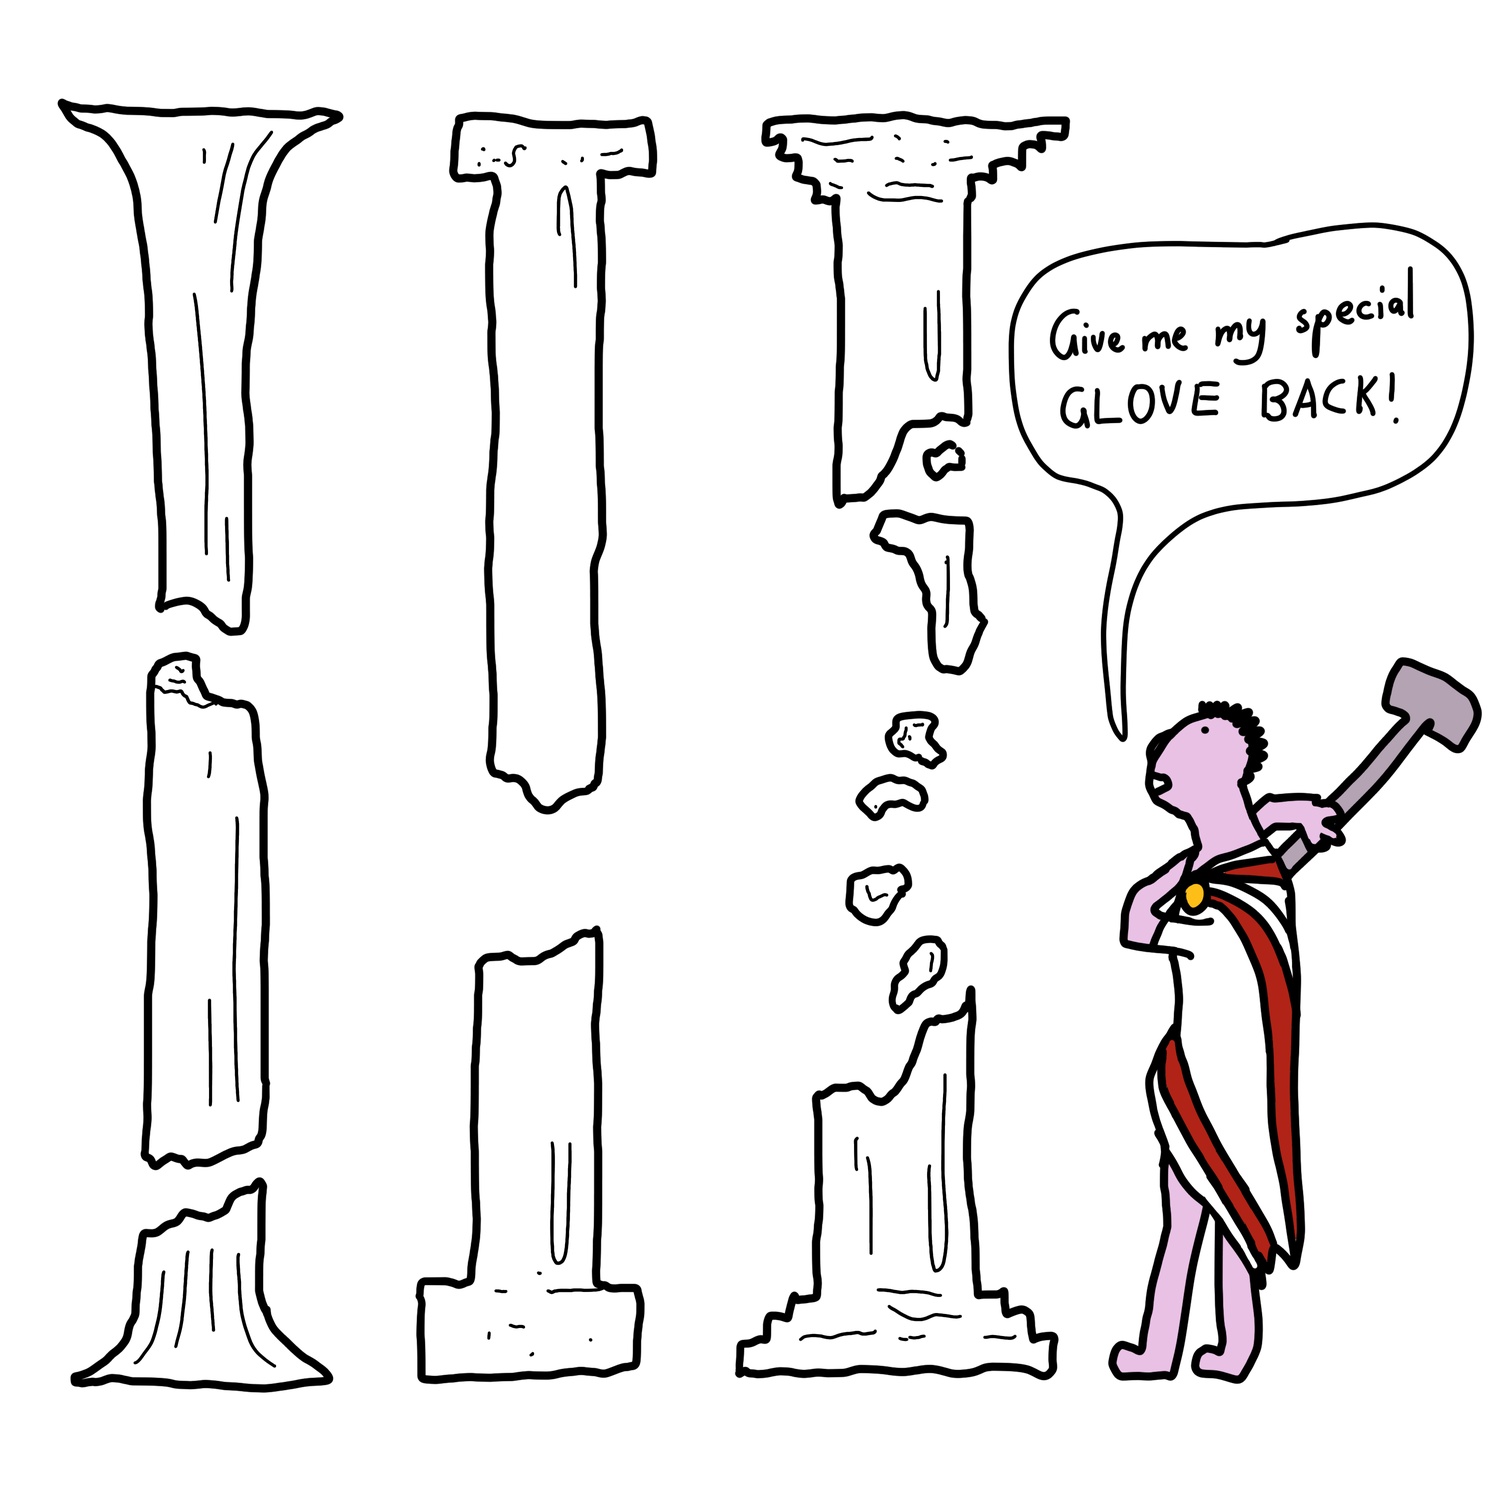 Give me my special
GLOVE BACK!